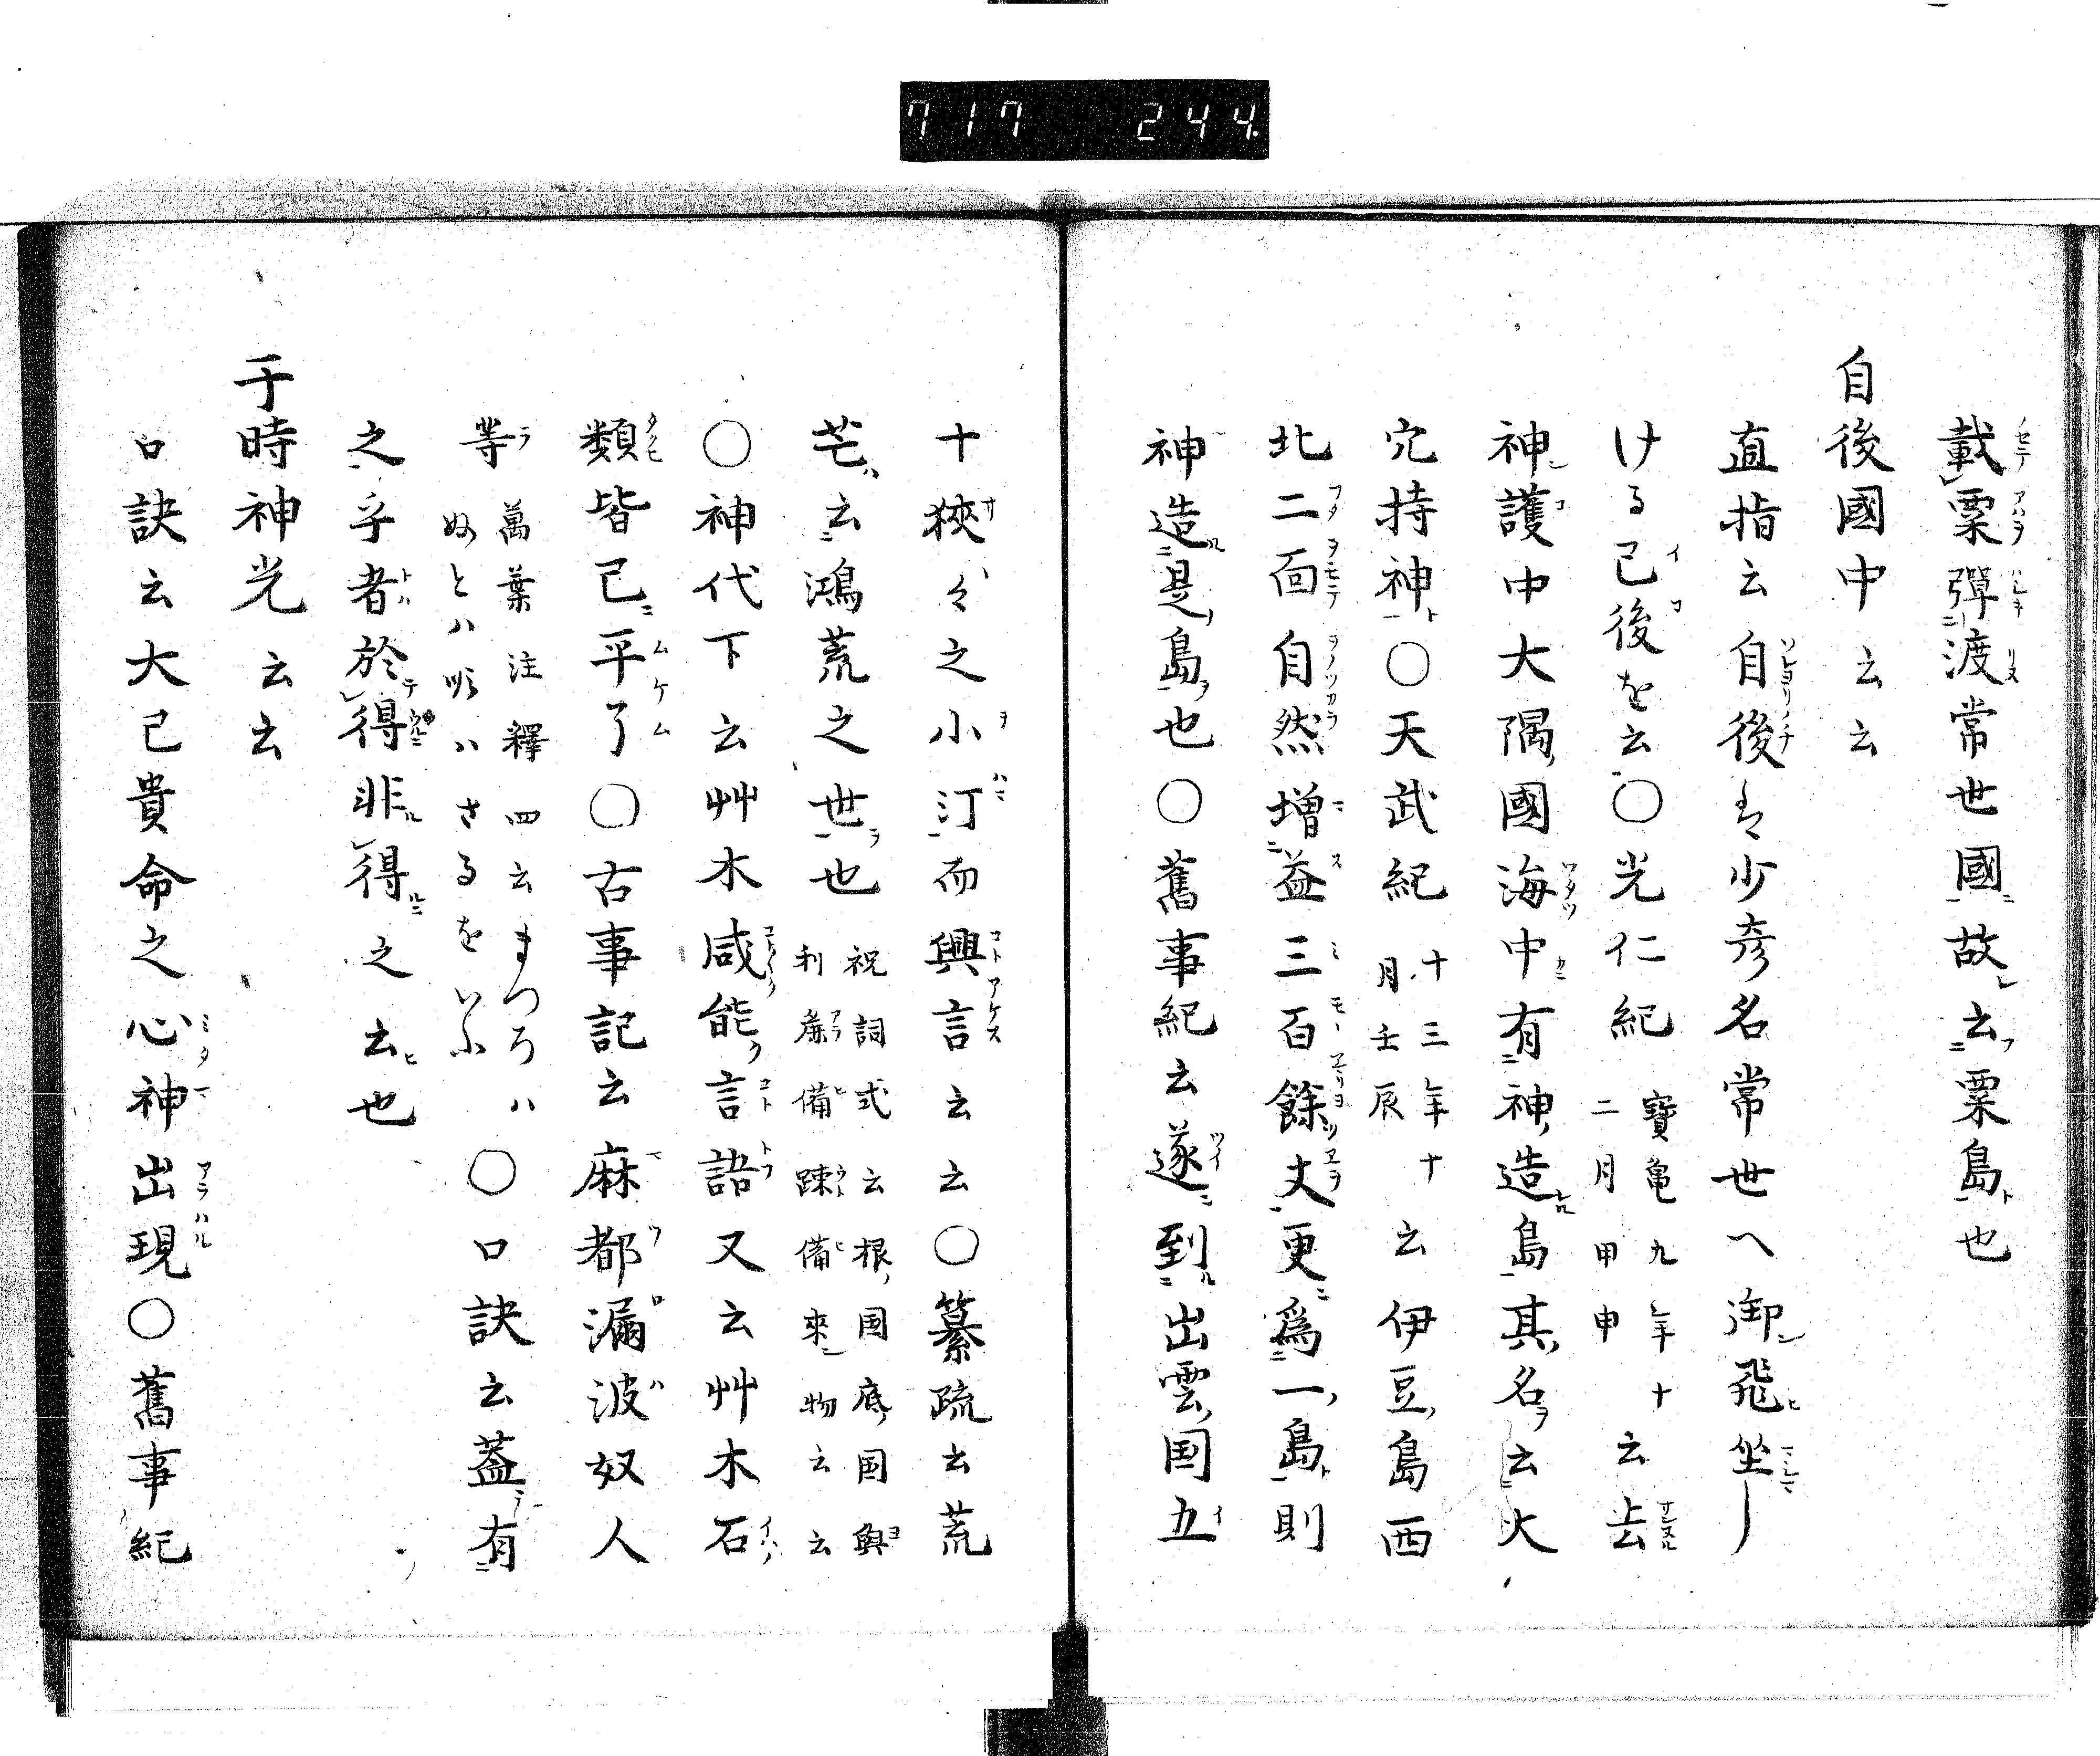 717 244
載粟彈渡常世國故云粟島也
自後國中云云
直指云自後とは少彦名常世へ御飛坐し
ける已後を云○光仁紀寶亀九年十二月甲申云去
神護中大隅國海中有神造島其名云大
穴持神○天武紀十三年十月壬辰云伊豆島西
北二面自然増益三百餘丈更爲一島則
神造是島也○舊事紀云遂到出雲国五
十狹々之小汀而興言云云○纂疏云荒
芒云鴻荒之世也祝詞式云根国底国與利麁備踈備來物云云
○神代下云艸木咸能言語又云艸木石
類皆已平了○古事記云麻都漏波奴人
等萬葉注釋四云まつろハぬとハ順ハさるをいふ○口訣云葢有
之乎者於得非得之云也
于時神光云云
口訣云大己貴命之心神出現○舊事紀